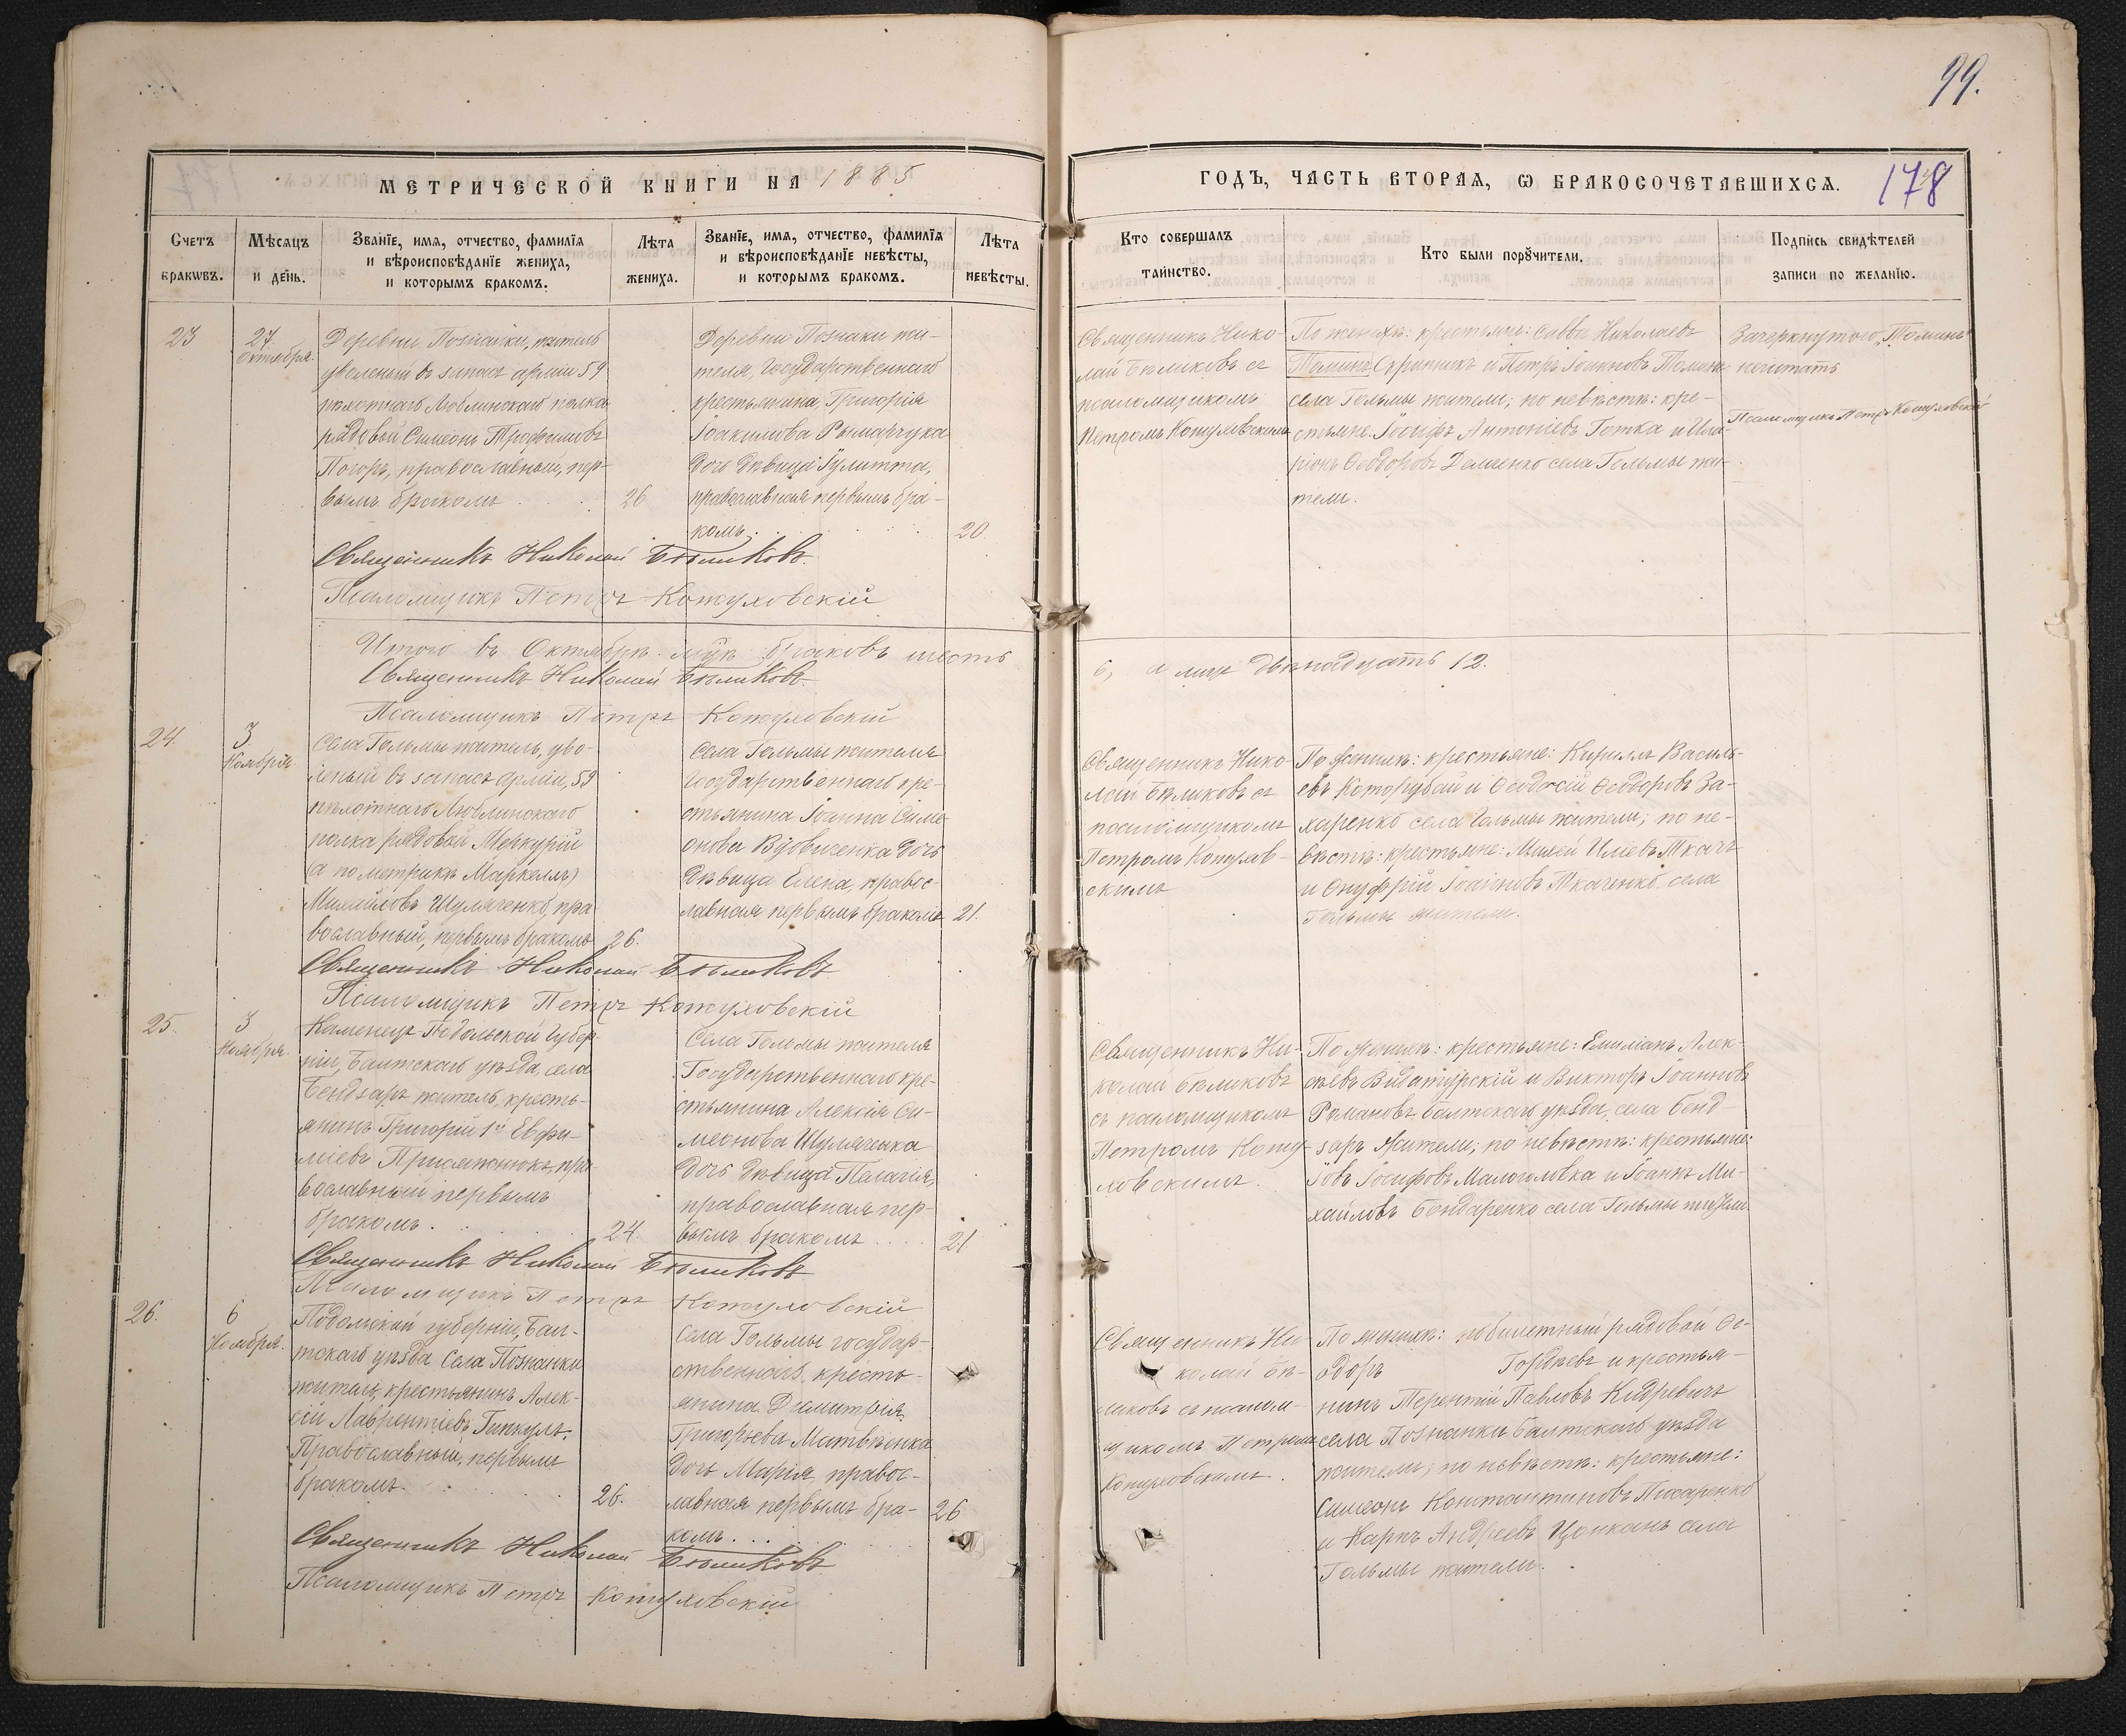 99.
МЕТРИЧЕСКОЙ КНИГИ НА 1885
ГОДЪ, ЧАСТЬ ВТОРАЯ, Ѡ БРАКОСОЧЕТАВШИХСЯ.
178
Счетъ браковъ.
Мѣсяцъ и день.
Званїе, имя, отчество, фамилїя и вѣроисповѣданїе жениха, и которымъ бракомъ.
Лѣта жениха.
Званїе, имя, отчество, фамилїя и вѣроисповѣданїе невѣсты, и которымъ бракомъ.
Лѣта невѣсты.
Кто совершалъ таинство.
Кто были порꙋчители.
Подпись свидѣтелей записи по желанїю.
23
27
Октября.
Деревни Познанки, житель
уволеный въ запасъ арміи 59
пѣхотнаго Люблинскаго полка
рядовой Симеонъ Трофимовъ
православный, пер-
вымъ бракомъ
26
Деревни Познаки жи-
теля, Государственнаго
крестьянина, Григорія
Іоакимова Рымарчука
дочь дѣвица Іулитта,
православная первымъ бра-
комъ.
20.
Священникъ Нико-
лай Бѣликовъ съ
псаломщикомъ
Петромъ Кожуховскимъ
По женихѣ: крестьяне: Савва Николаевъ
Томинъ Скрипникъ и Петръ Іоанновъ Томинъ
села Гольмы жители; по невѣстѣ: кре-
стьяне: Іосифъ Антоніевъ Готка и Ила-
ріонъ Ѳеодоровъ Демченко села Гольмы жи-
тели.
Зачеркнутого „Томинъ“
нечитать
Псаломщикъ Петръ Кожуховскій
Священникъ Николай Бѣликовъ.
Псаломщикъ Петръ Кожуховскій
Итого въ Октябрѣ м-цѣ браковъ шесть
6, а лицъ двѣнадцать 12.
Священникъ Николай Бѣликовъ.
Псаломщикъ Петръ Кожуховскій
24.
3
Ноября
Села Гольмы житель, уво-
леный въ запасъ арміи, 59
пѣхотнаго Люблинскаго
полка рядовой Меркурій
(а по метрикѣ Маркеллъ)
Михайловъ Шуляченко, пра-
вославный, первымъ бракомъ
26.
Села Гольмы жителя
Государственнаго кре-
стьянина Іоанна Симе-
онова Вдовиченка дочь
дѣвица Елена, правос-
лавная первымъ бракомъ
21.
Священникъ Нико-
лай Бѣликовъ съ
псаломщикомъ
Петромъ Кожухов-
скимъ
По женихѣ: крестьяне: Кириллъ Василь-
евъ Которубай и Ѳеодосій Ѳеодоровъ За-
харенко села Гольмы жители; по не-
вѣстѣ: крестьяне: Илієвъ Ткачъ
и Онуфрій Іоанновъ Ткаченко села
Гольмы жители.
Священникъ Николай Бѣликовъ
Псаломщикъ Петръ Кожуховскій
25.
3
Ноября.
Каменецъ Подольской Губер-
ніи, Балтскаго уѣзда, села
Бендзаръ житель, кресть-
янинъ Григорій 1й Евфи-
міевъ Присяжнюкъ, пра-
вославный первымъ
бракомъ.
24.
Села Гольмы жителя
Государственнаго кре-
стьянина Алексія Си-
меонова Шуляченка
дочь дѣвица Пелагія,
православная пер-
вымъ бракомъ
21.
Священникъ Ни-
колай Бѣликовъ
съ псаломщикомъ
Петромъ Кожу-
ховскимъ.
По женихѣ: крестьяне: Емиліанъ Алек-
сѣевъ и Викторъ Іоанновъ
Романовъ Балтскаго уѣзда, села Бенд-
заръ жители; по невѣстѣ: крестьяне:
Іовъ Іосифовъ Малоголовка и Іоаннъ Ми-
хайловъ Бондаренко села Гольмы жители.
Священникъ Николай Бѣликовъ
Псаломщикъ Петръ Кожуховскій
26.
6
Ноября.
Подольской губерніи, Бал-
тскаго уѣзда Села Познанки
житель, крестьянинъ Алек-
сій Лаврентіевъ Гинкулъ.
Православный, первымъ
бракомъ.
26.
Села Гольмы государ-
ственнаго кресть-
янина Димитрія
Григорьева Матвѣенка
дочь Марія правос-
лавная первымъ бра-
комъ...
26
Священникъ Ни-
колай Бѣ-
ликовъ съ псалом-
щикомъ Петромъ
Кожуховскимъ.
По женихѣ: побилетный рядовой Ѳе-
одоръ Гордѣевъ и крестья-
нинъ Терентій Павловъ Кидревичъ
села Познанки Балтскаго уѣзда
жители; по невѣстѣ: крестьяне:
Симеонъ Константиновъ Писаренко
и Карпъ Андреевъ Цонканъ села
Гольмы жители.
Священникъ Николай Бѣликовъ
Псаломщикъ Петръ Кожуховскій